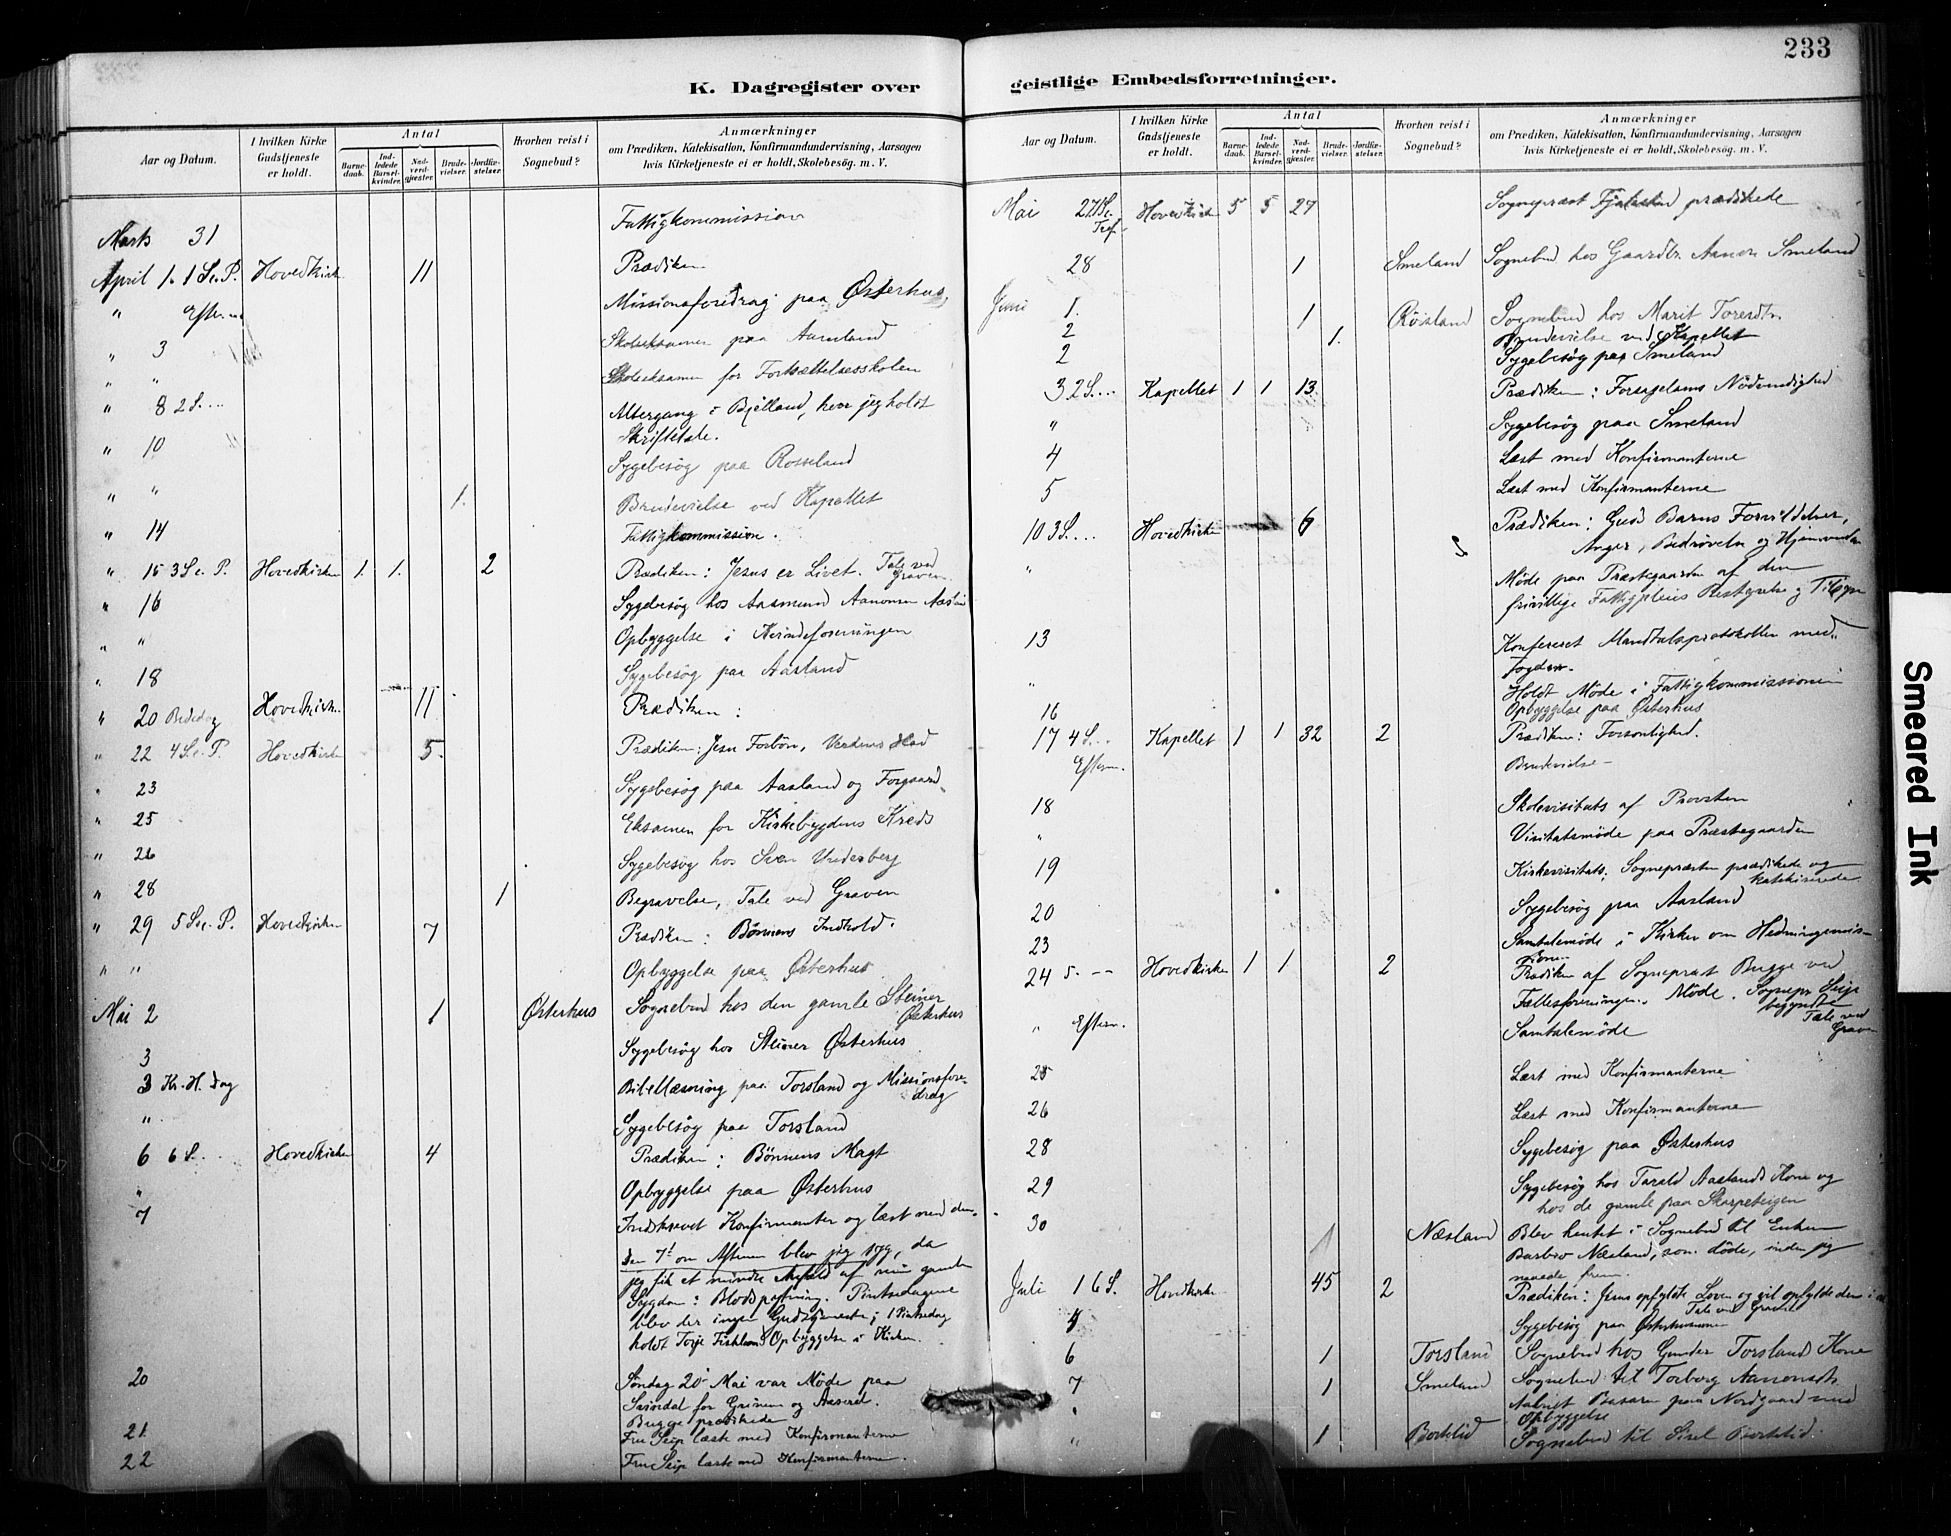 233
K. Dagregister over geistlige Embedsforretninger.
Aar og Datum.
I hvilken Kirke Gudstjeneste er holdt.
Antal
Barnedaab.
Indledede Barselkvinder.
Nadverdgjæster.
Brudevielser.
Jordfæstelser.
Hvorhen reist i Sognebud?
Anmærkninger
om Prædiken, Katekisation, Konfirmandundervisning, Aarsagen
hvis Kirketjeneste ei er holdt, Skolebesøg. m. V.
Marts 31 Fattigkommission
April 1. 1 S. e. P. Hovedkirk 11 Prædiken
" Efterm Missionsforedrag paa Østerhus
" 3 Skoleeksamen paa Aamland
" " Skoleeksamen for Fortsættelsesskolen
" 8 2 S. ... Altergang i Bjelland, hvor jeg holdt
Skriftetale.
" 10 Sygebesøg paa Rosseland
" " 1. Brudevielse ved Kapellet
" 14 Fattigkommission.
" 15 3 S. e. P. Hovedkirken 1. 1. 2 Prædiken: Jesus er Livet. Tale ved Graven
" 16 Sygebesøg hos Aasmund Aanonsen
" " Opbyggelse i Kvindeforeningen
" 18 Sygebesøg paa Aasland
" 20 Bededag Hovedkirk.. 11 Prædiken:
" 22 4 S. e. P. Hovedkirke 5. Prædiken: Jesu Forbøn, Verdens Had
" 23 Sygebesøg paa Aasland og Forgaard
" 25 Eksamen for Kirkebygdens Kreds
" 26 Sygebesøg hos Sven
" 28 1 Begravelse, Tale ved Graven
" 29 5 S. e. P. Hovedkirken 7 Prædiken: Bønnens Indhold.
" " Opbyggelse paa Østerhus
Mai 2 1 Østerhus Sognebud hos den gamle Steiner
Østerhus
3 Sygebesøg hos Steiner Østerhus
3 Kr. H. dag Bibellæsning paa Torsland og Missionsfore-
drag
" Sygebesøg paa Torsland
6 6 S. Hovedkirken 4 Prædiken: Bønnens Magt
" Opbyggelse paa Østerhus
7 Indskrevet Konfirmanter og læst med dem.
Den 7de om Aftenen blev jeg syg, da
jeg fik et mindre Anfald af min gamle
Sygdom: Blodspytning. Pintsedagene
blev der ingen Gudstjeneste; 1 Pintsedag
holdt Torje Opbyggelse i Kirken.
20 Søndag 20 Mai var Møde paa
Svindal for Grinem og Aaseral.
Bugge prædikede
21 Fru Seip læste med Konfirmanterne
22 Fru Seip læste med Konfirmanterne.
Aar og Datum.
I hvilken Kirke Gudstjeneste er holdt.
Antal
Barnedaab.
Indledede Barselkvinder.
Nadverdgjæster.
Brudevielser.
Jordfæstelser.
Hvorhen reist i Sognebud?
Anmærkninger
om Prædiken, Katekisation, Konfirmandundervisning, Aarsagen
hvis Kirketjeneste ei er holdt, Skolebesøg. m. V.
Mai 27 Tref. Hovedkirk 5 5 27 Sogneprest prædikede
28 1 Smeland Sognebud hos Gaardbr. Aanon Smeland
Juni 1. 1 Røisland Sognebud hos Marit Toresdtr
2 1. Brudevielse ved Kapellet
2 Sygebesøg paa Smeland
3 2 S.... Kapellet 1 1 13 Prædiken: Forsagelsens Nødvendighed
" Sygebesøg paa Smeland
4 Læst med Konfirmanterne
5 Læst med Konfirmanterne
10 3 S.... Hovedkirken 6 Prædiken: Guds Barns Forvildelser,
Anger, Bedrøvelse og Hjemvenden
" Møde paa Præstegaarden af den
frivillige Fattigpleies Bestyrelse og Tilsyn
13 Konfereret Mandtalsprotokollen med
Fogden.
" Holdt Møde i Fattigkommissionen
16 Opbyggelse paa Østerhus
17 4 S... Kapellet 1 1 32 2 Prædiken: Forsonlighed.
Efterm. Brudevielse -
18 Skolevisitats af Provsten
" Visitatsmøde paa Præstegaarden
19 Kirkevisitats; Sognepræsten prædikede og
katekiserede
20 Sygebesøg paa Aasland
23 Samtalemøde i Kirken om Hedningemis-
sion
24 5. - - Hovedkirken 1 1 2 Prædiken af Sogneprest Bugge ved
Fællesforeningens Møde. Sognepr Seip
begyndte
Tale ved
Graven
" Efterm. Samtalemøde
25 Læst med Konfirmanterne
26 Læst med Konfirmanterne
28 Sygebesøg paa Østerhus
29 Sygebesøg hos Tarald Aaslands Kone og
hos de gamle paa Skarpeteigen
30 1 Næsland Blev hentet i Sognebud til Enken
Barbro Næsland, som døde, inden jeg
naaede frem.
Juli 1 6 S. Hovedkirke 45 2 Prædiken: Jesus opfyldte Loven og vil opfylde den i os
Tale ved Graven
4 Sygebesøg paa
6 1 Torsland Sognebud hos Gunder Torslands Kone
7 1 Smeland Sognebud til Torborg Aanonsdtr
" Aabnet Basaren paa Nordgaard med
Opbyggelse
" 1 Borteli Sognebud til Sisel
Smeared Ink